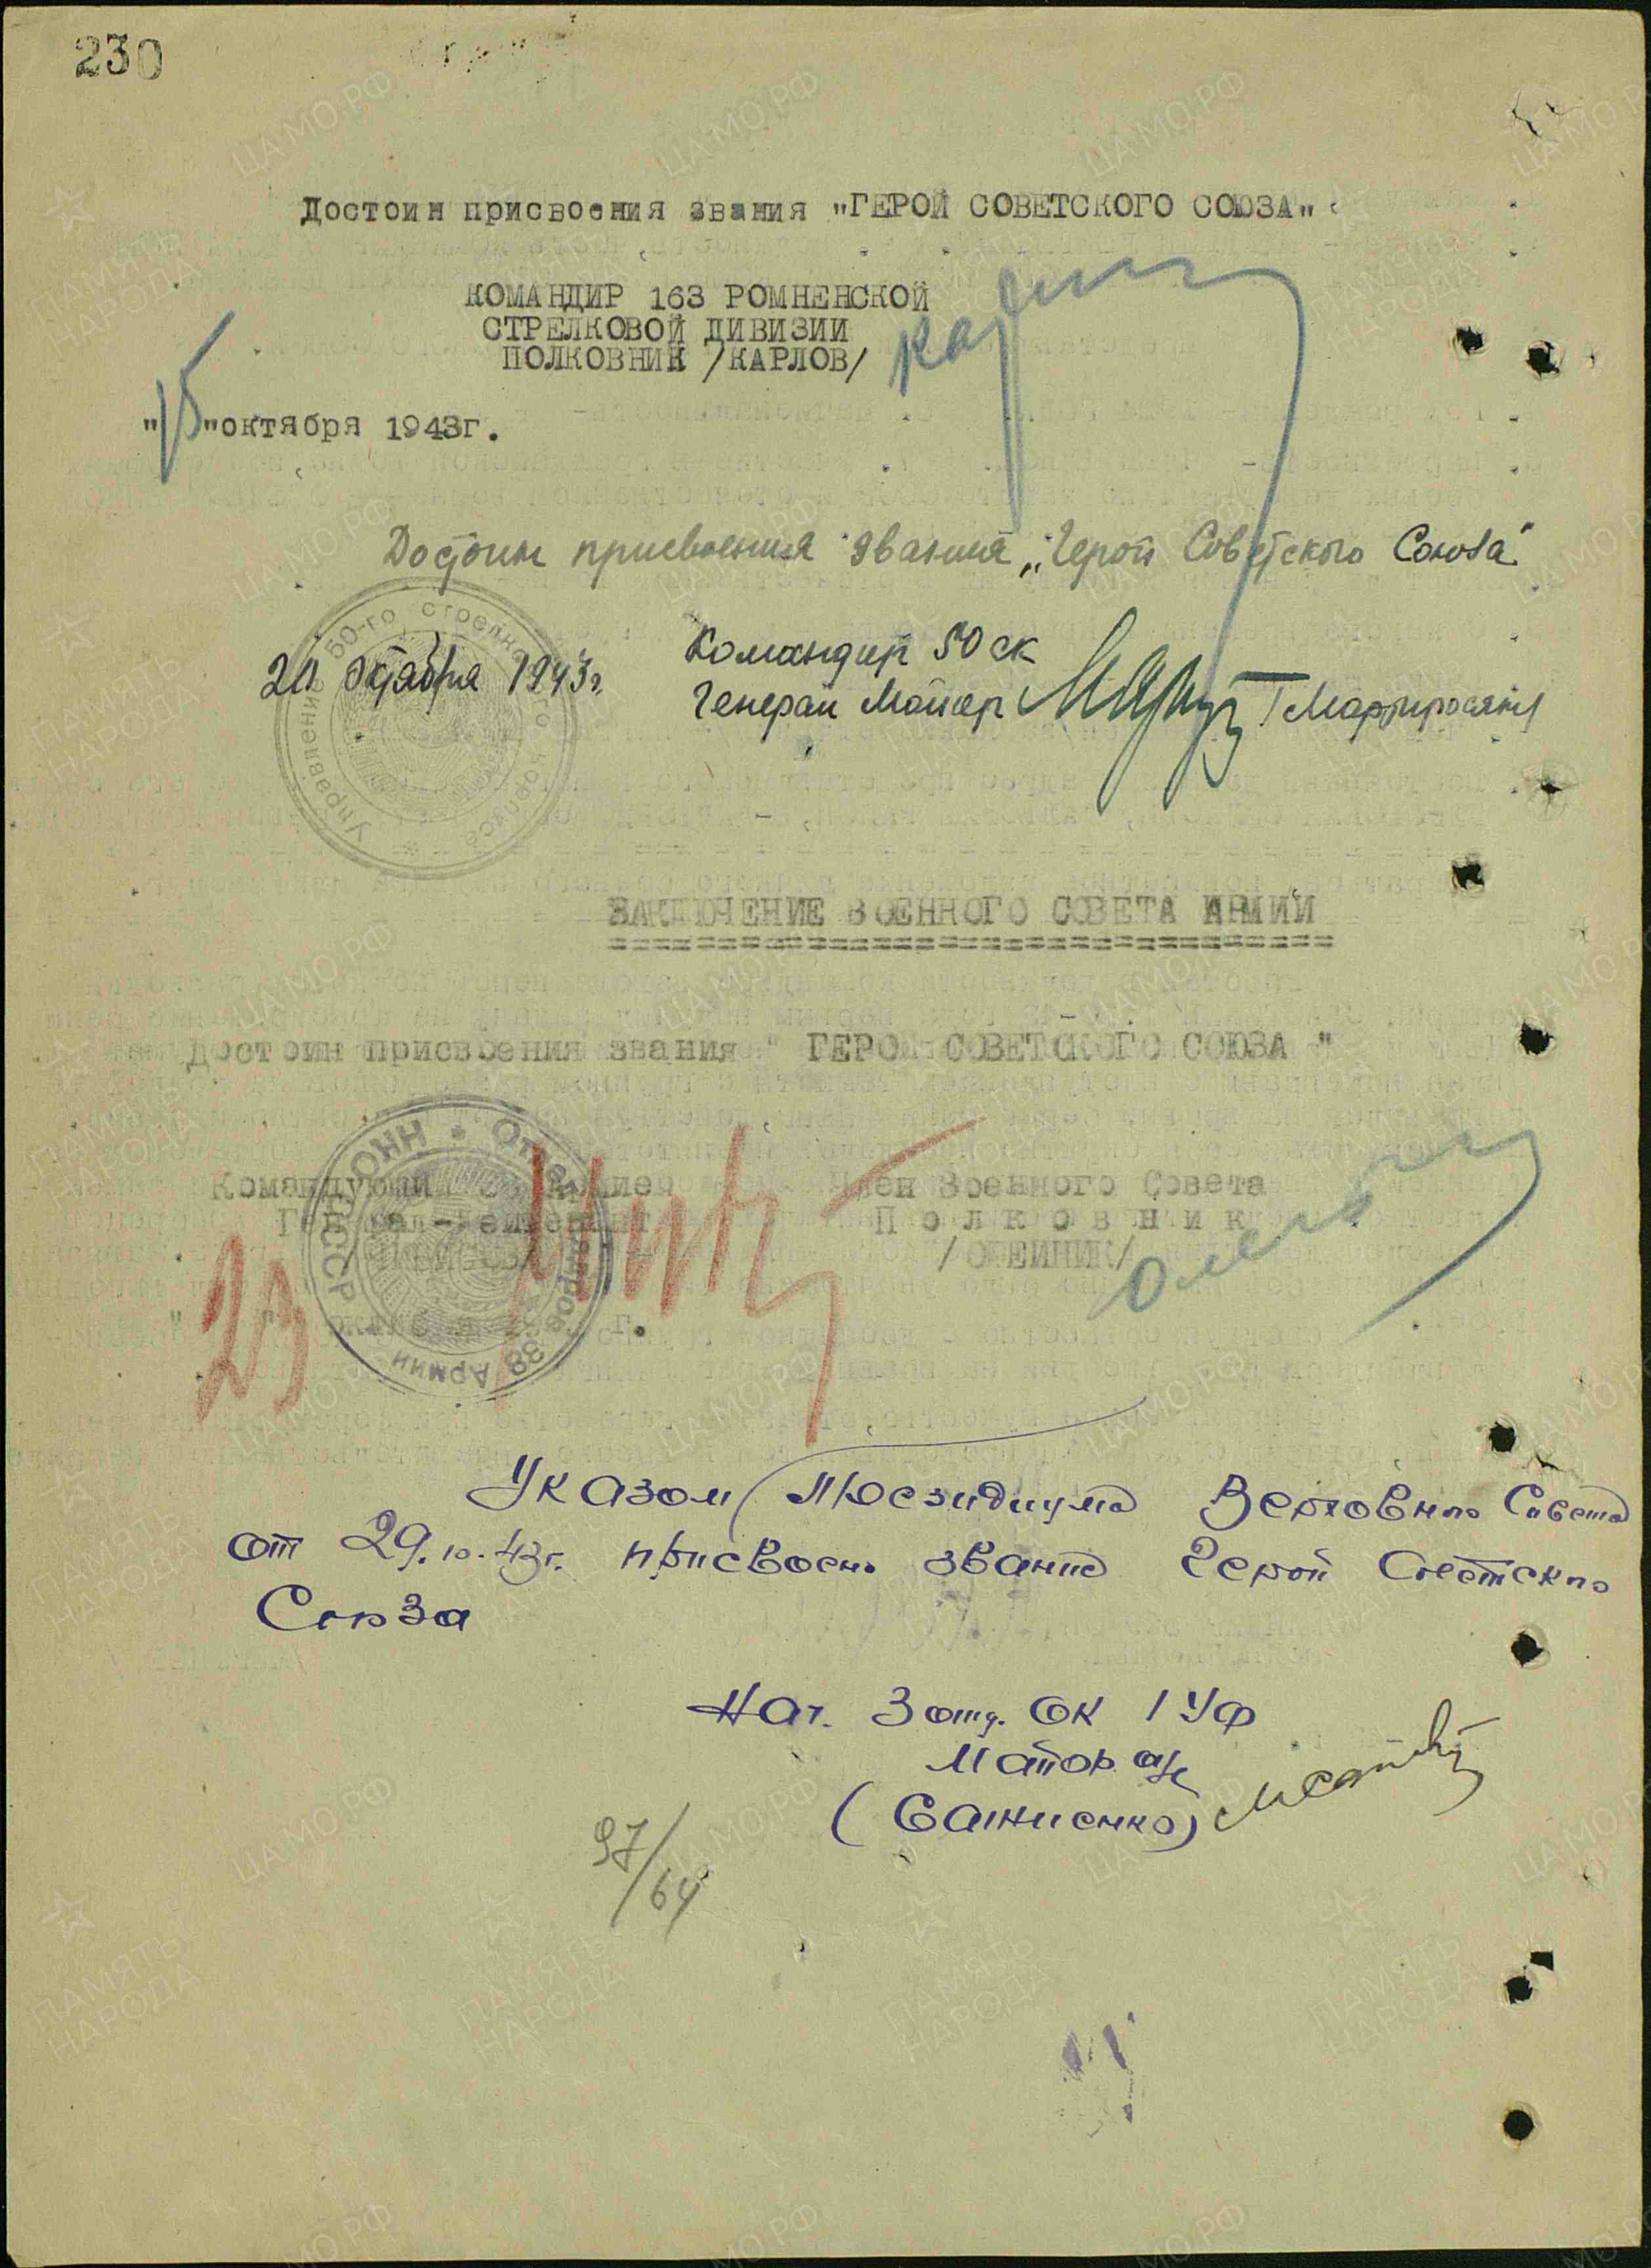 230
Достоин присвоения звания "ГЕРОЙ СОВЕТСКОГО СОЮЗА"
КОМАНДИР 163 РОМНЕНСКОЙ
СТРЕЛКОВОЙ ДИВИЗИИ
ПОЛКОВНИК /КАРЛОВ/
"15"октября 1943г.
Достоин присвоения звания „Герой Советского Союза"
Командир 50 ск
20 октября 1943г.
Генерал Майор /Мартиросян/
Управление 50-го стрелкового корпуса
ЗАКЛЮЧЕНИЕ ВОЕННОГО СОВЕТА АРМИИ
Достоин присвоения звания " ГЕРОЙ СОВЕТСКОГО СОЮЗА "
Командующий Армией Член Военного Совета
Генерал-Лейтенант Полковник
/ОЛЕЙНИК/
"23" г.
СССР НКО Отдел кадров 38 Армии
Указом Президиума Верховного Совета
от 29.10.43г. присвоено звание Герой Советского
Союза
Нач. 3 отд. ОК 1 УФ
Майор а/с
97/64
ЦАМО.РФ
ПАМЯТЬ НАРОДА